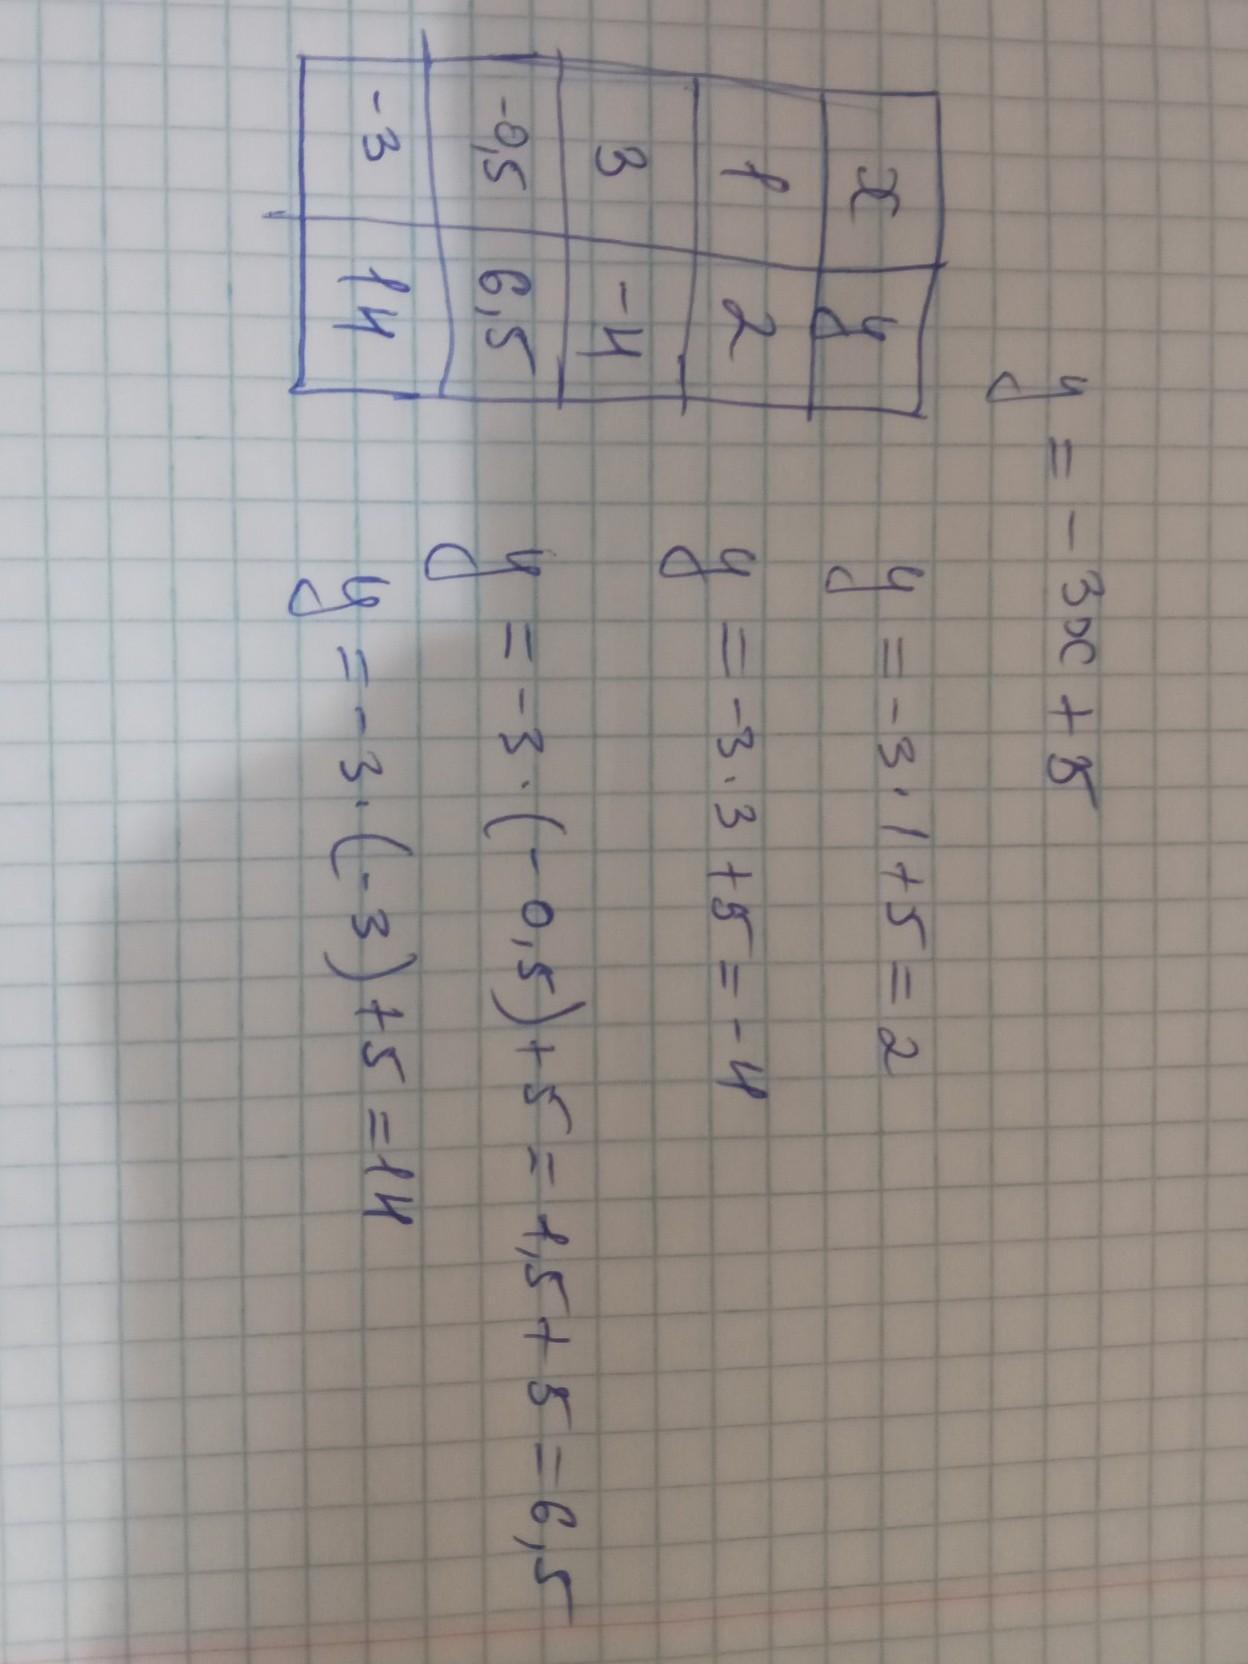 y = -3x + 5
x y
1 2
3 -4
-0,5 6,5
-3 14
y = -3·1+5=2
y = -3·3+5=-4
y = -3·(-0,5)+5=1,5+5=6,5
y = -3·(-3)+5=14